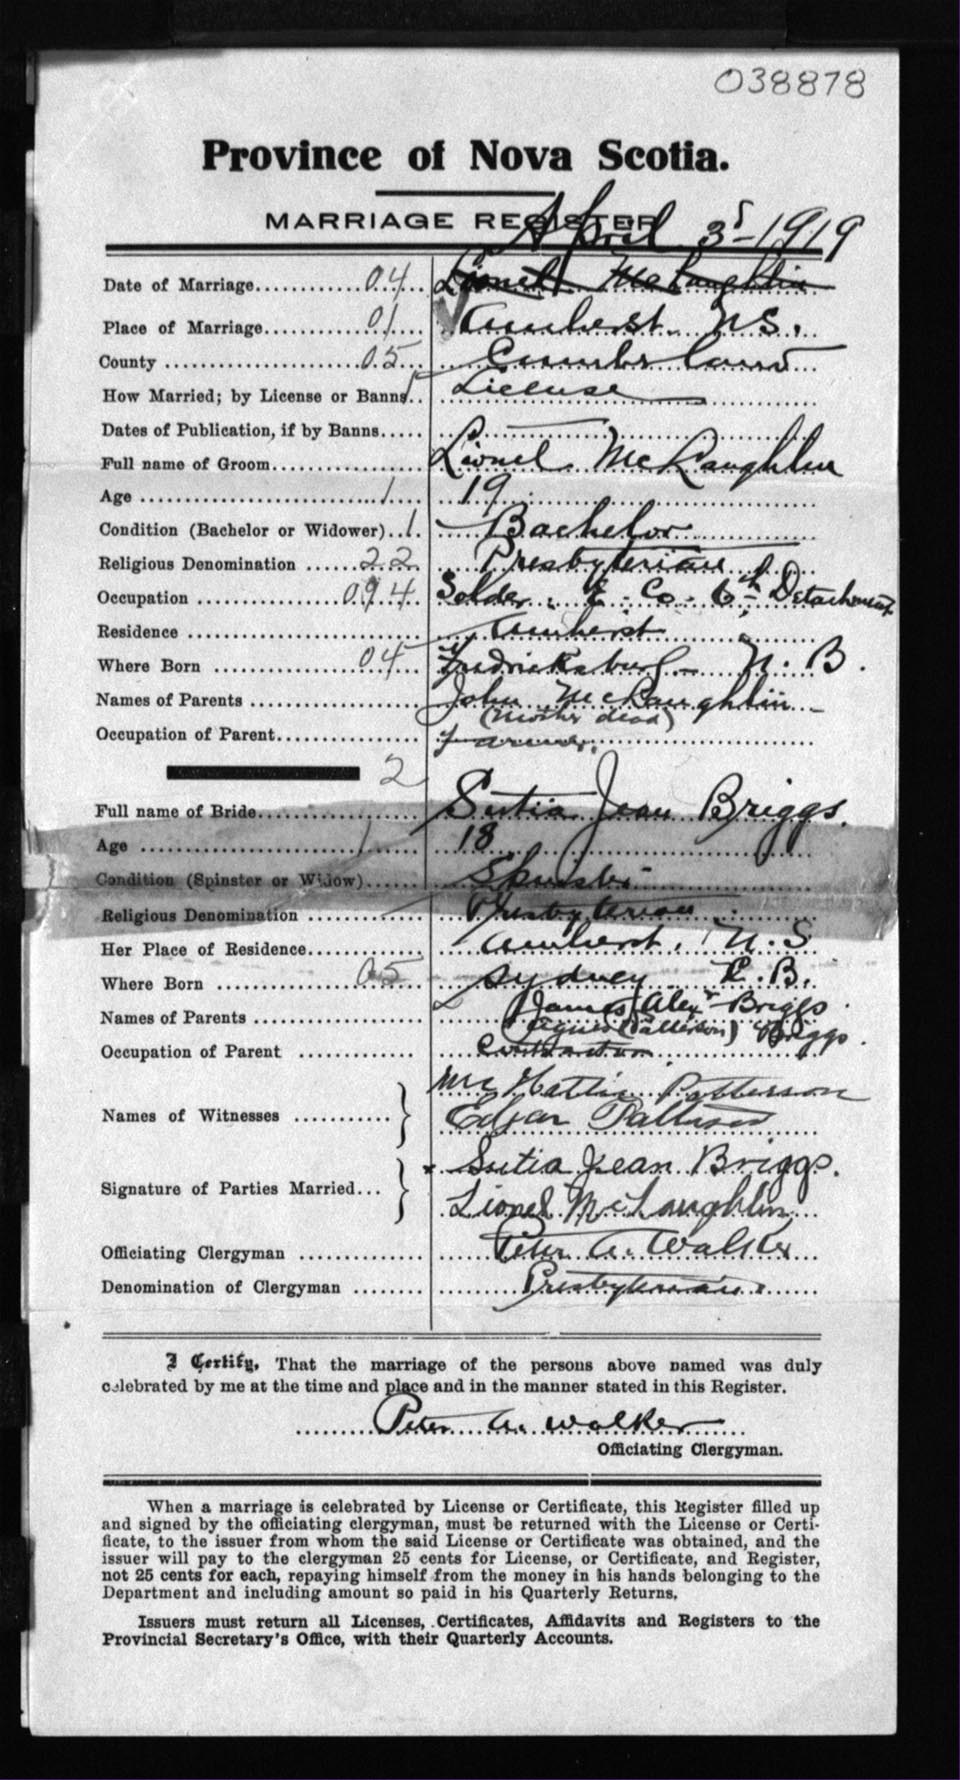 038878
Province of Nova Scotia.
MARRIAGE REGISTER
April 3rd 1919
Date of Marriage............04 Lionel McLaughlin
Place of Marriage............01 Amherst N.S.
County............05 Cumberland
How Married; by License or Banns.. 1 License
Dates of Publication, if by Banns.....
Full name of Groom............ Lionel McLaughlin
Age............1 19
Condition (Bachelor or Widower)..1. Bachelor
Religious Denomination......22 Presbyterian
Occupation............094 Solder. E. Co. 6th Detachment
Residence............ Amherst
Where Born............04 Fredricksburg N.B.
Names of Parents............ John McLaughlin
(Mother dead)
Occupation of Parent............ Farmer.
2
Full name of Bride............ Sutia Jean Briggs.
Age............1 18
Condition (Spinster or Widow)...... Spinster
Religious Denomination............ Presbyterian
Her Place of Residence............ Amherst, N.S
Where Born............05 Sydney C.B.
Names of Parents............ James Alexr Briggs
Agnes (Patterson) Briggs.
Occupation of Parent............ Contractor
Names of Witnesses............ Hattie Patterson
Edgar Patterson
Signature of Parties Married... x Sutia Jean Briggs.
Lionel McLaughlin
Officiating Clergyman............ Peter A. Walker
Denomination of Clergyman........ Presbyterian.
I Certify, That the marriage of the persons above named was duly
celebrated by me at the time and place and in the manner stated in this Register.
Peter A. Walker
Officiating Clergyman.
When a marriage is celebrated by License or Certificate, this Register filled up
and signed by the officiating clergyman, must be returned with the License or Certi-
ficate, to the issuer from whom the said License or Certificate was obtained, and the
issuer will pay to the clergyman 25 cents for License, or Certificate, and Register,
not 25 cents for each, repaying himself from the money in his hands belonging to the
Department and including amount so paid in his Quarterly Returns.
Issuers must return all Licenses, Certificates, Affidavits and Registers to the
Provincial Secretary's Office, with their Quarterly Accounts.